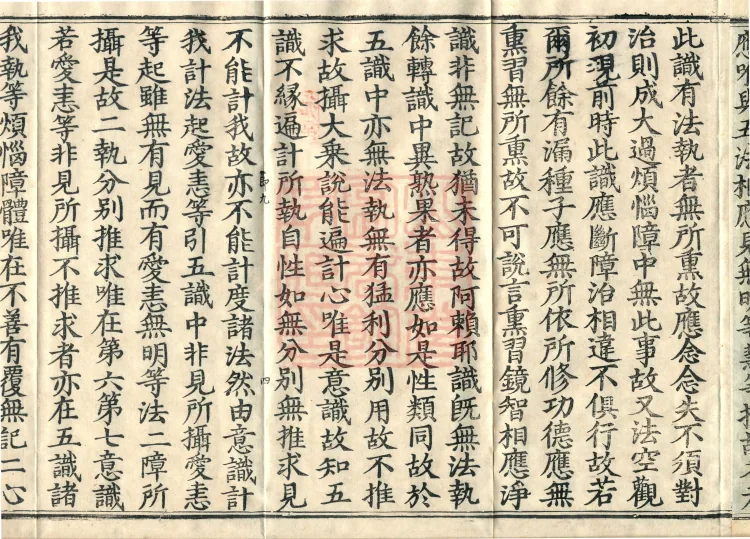 此識有法執者無所熏故應念念失不須對
治則成大過煩惱障中無此事故又法空觀
初現前時此識應斷障治相違不俱行故若
爾所餘有漏種子應無所依所修功德應無
熏習無所熏故不可說言熏習鏡智相應淨
識非無記故猶未得故阿賴耶識旣無法執
餘轉識中異熟果者亦應如是性類同故於
五識中亦無法執無有猛利分別用故不推
求故攝大乘說能遍計心唯是意識故知五
識不緣遍計所執自性如無分別無推求見
不能計我故亦不能計度諸法然由意識計
我計法起愛恚等引五識中非見所攝愛恚
等起雖無有見而有愛恚無明等法二障所
攝是故二執分別推求唯在第六第七意識
若愛恚等非見所攝不推求者亦在五識諸
我執等煩惱障體唯在不善有覆無記二心